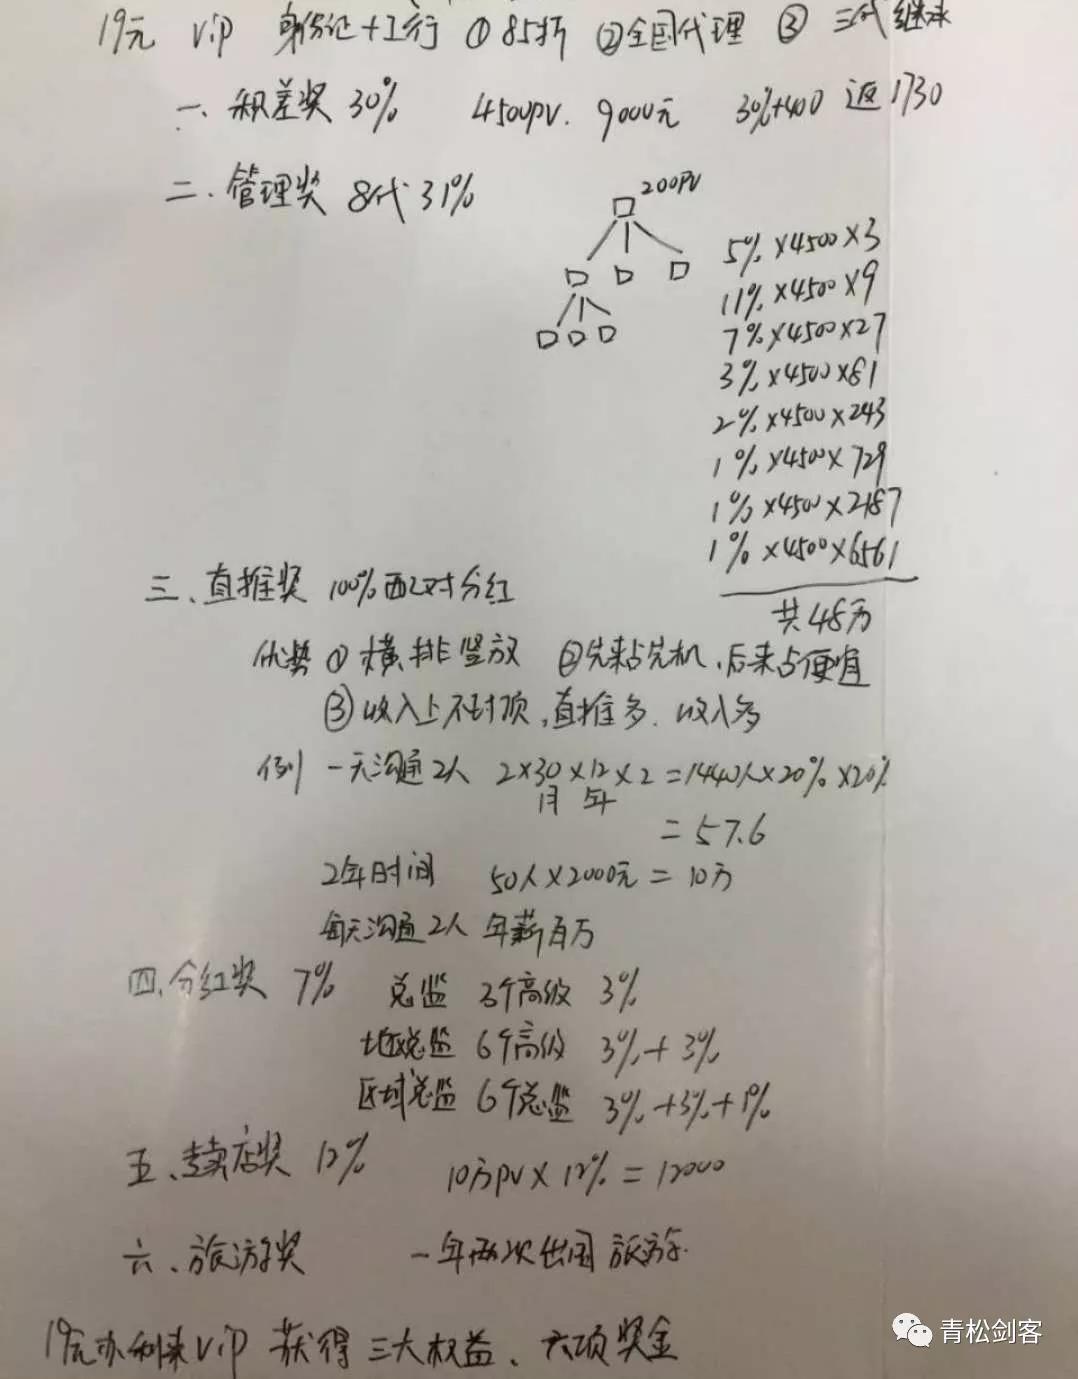 19元 Vip 身份证+工行 ①85折 ②全国代理 ③三代继承
一、积差奖 30% 4500PV. 9000元 30%+400 返1730
二.管理奖 8代31%
200PV
5%×4500×3
11%×4500×9
7%×4500×27
3%×4500×81
2%×4500×243
1%×4500×729
1%×4500×2187
1%×4500×6561
共48万
三、直推奖 100%配对分红
优势 ①横排竖放 ②先来占先机,后来占便宜
③收入上不封顶,直推多.收入多
例 一天沟通2人 2×30×12×2=1440人×20%×20%
月 年
=57.6
2年时间 50人×2000元=10万
每天沟通2人 年薪百万
四.分红奖 7% 总监 3个高级 3%
地区总监 6个高级 3%+3%
区域总监 6个总监 3%+3%+1%
五、专卖店奖 12% 10万PV×12%=12000
六、旅游奖 一年两次出国旅游.
19元办利来Vip 获得三大权益、六项奖金
青松剑客